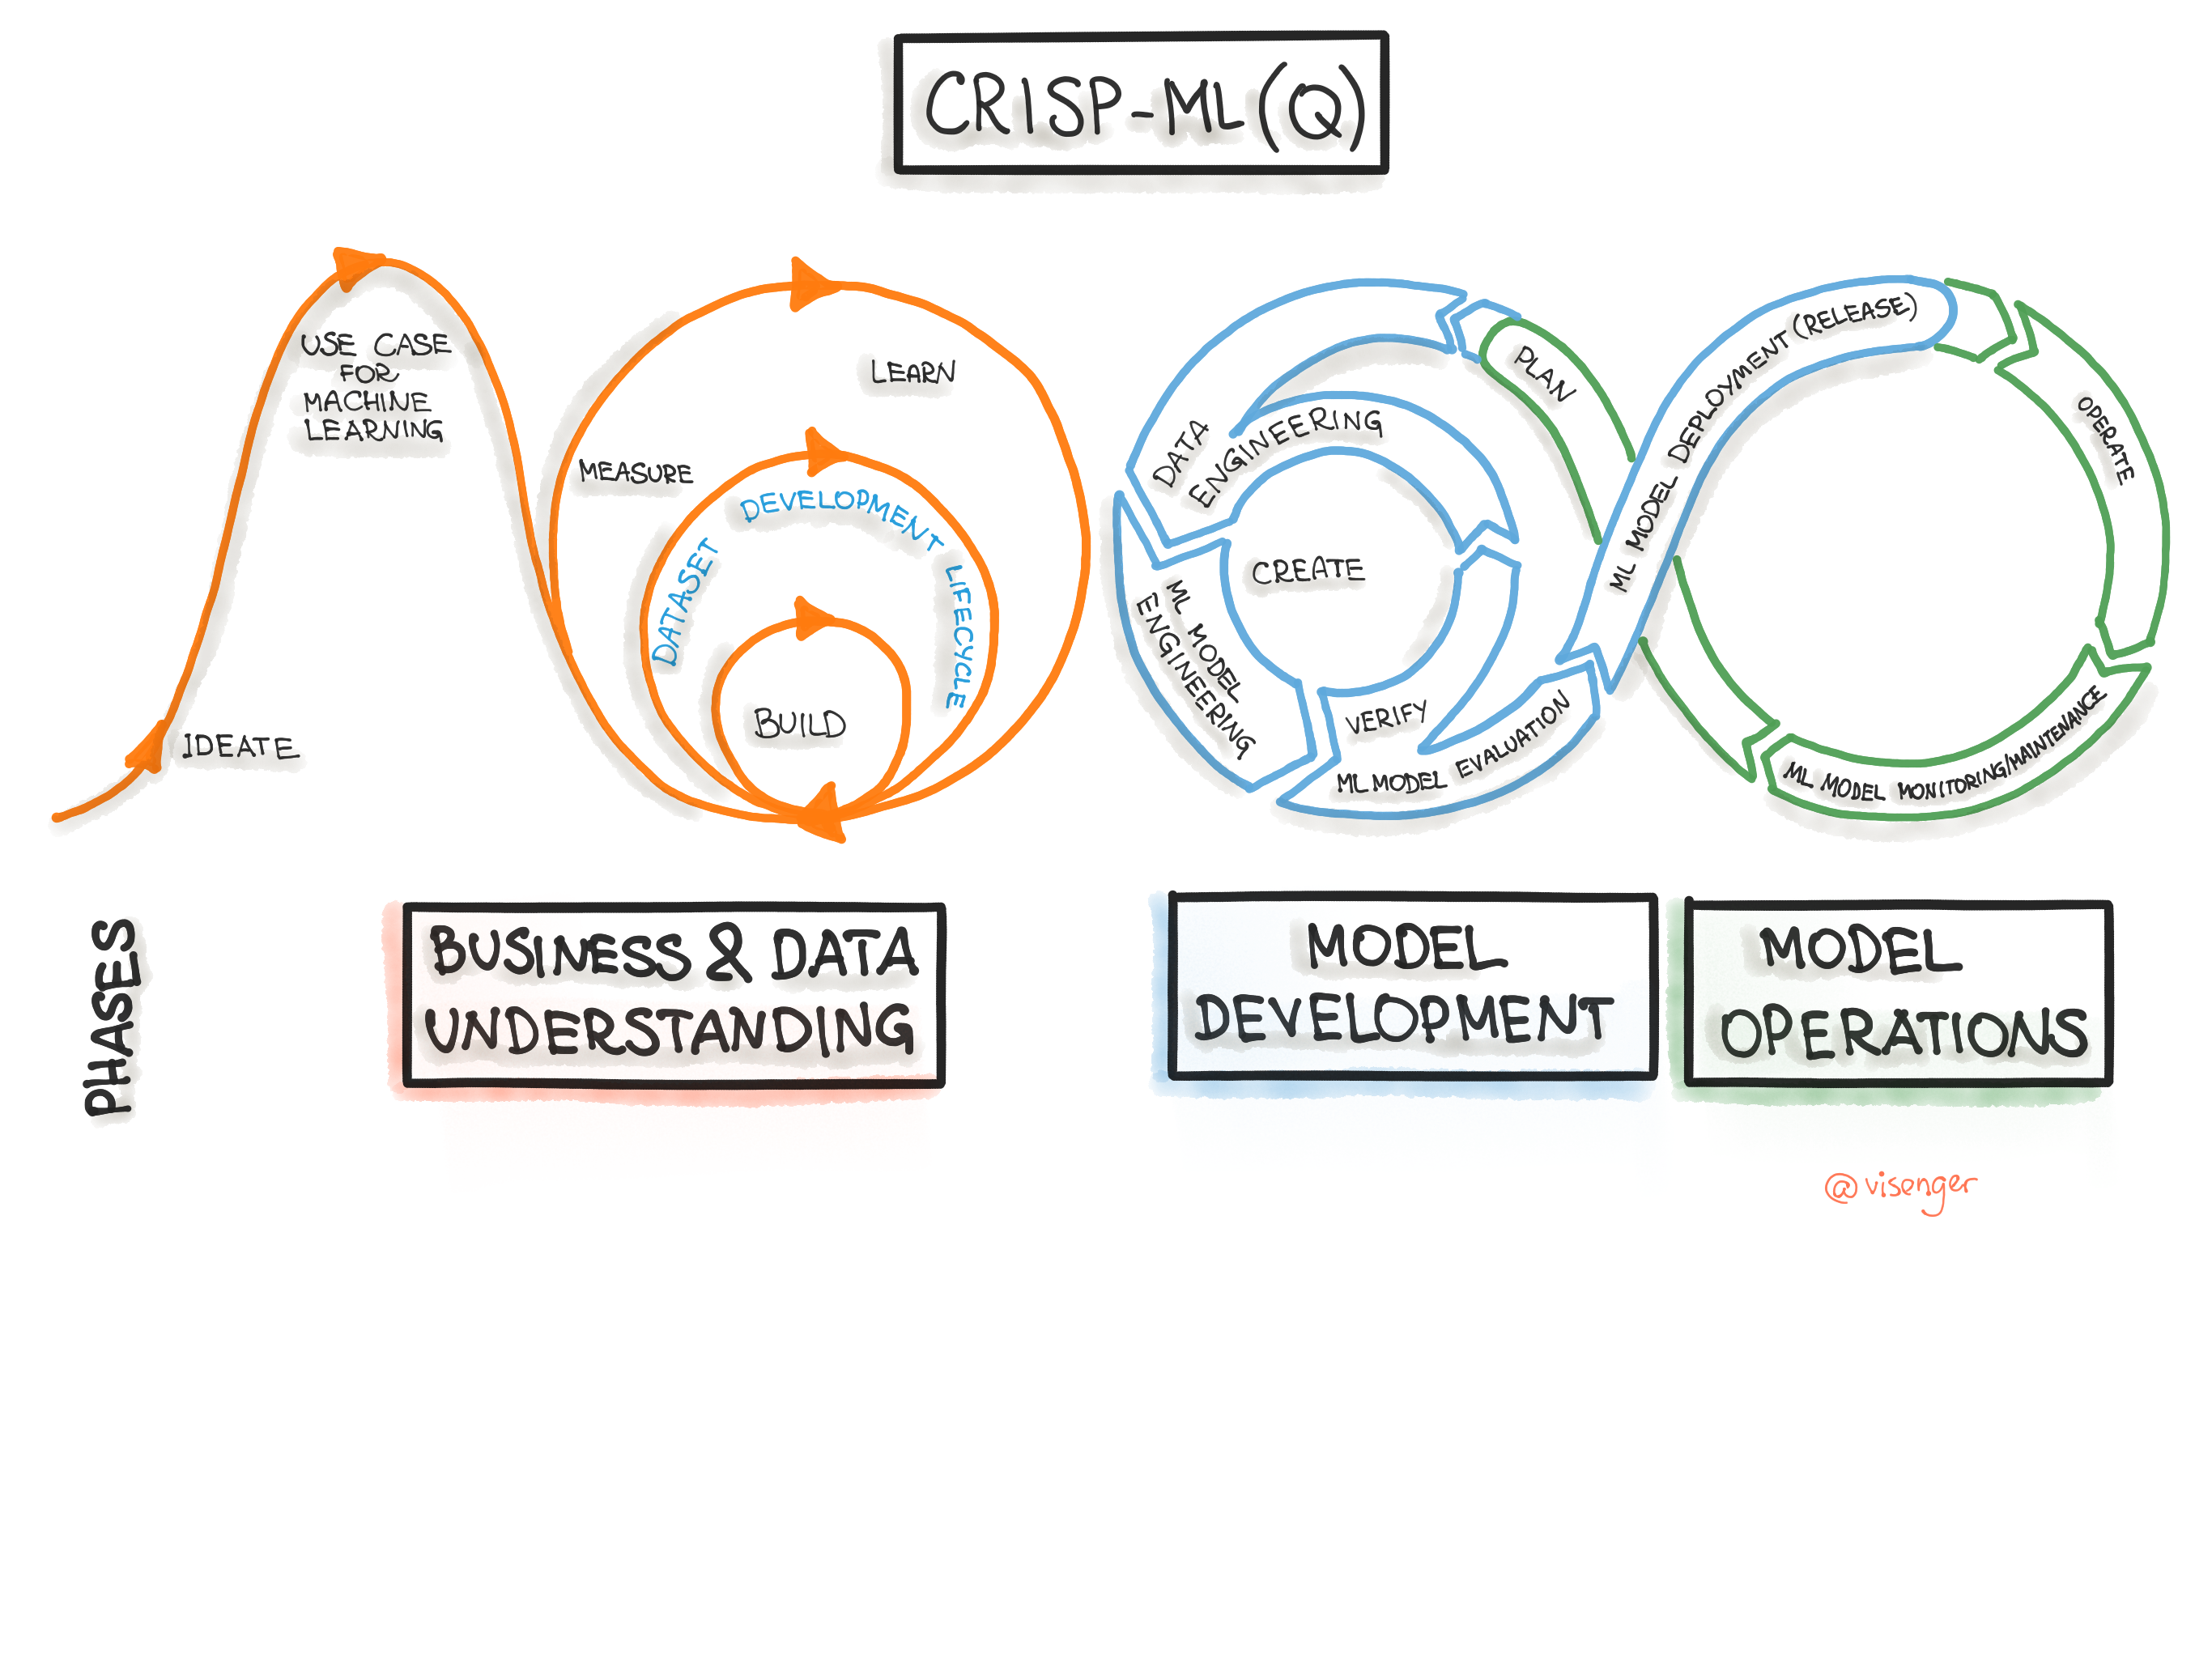 CRISP-ML(Q)
USE CASE
FOR
MACHINE
LEARNING
IDEATE
LEARN
MEASURE
DATASET DEVELOPMENT LIFECYCLE
BUILD
PLAN
DATA
ENGINEERING
CREATE
ML MODEL
ENGINEERING
VERIFY
ML MODEL EVALUATION
ML MODEL DEPLOYMENT (RELEASE)
OPERATE
ML MODEL MONITORING/MAINTENANCE
PHASES
BUSINESS & DATA
UNDERSTANDING
MODEL
DEVELOPMENT
MODEL
OPERATIONS
@visenger